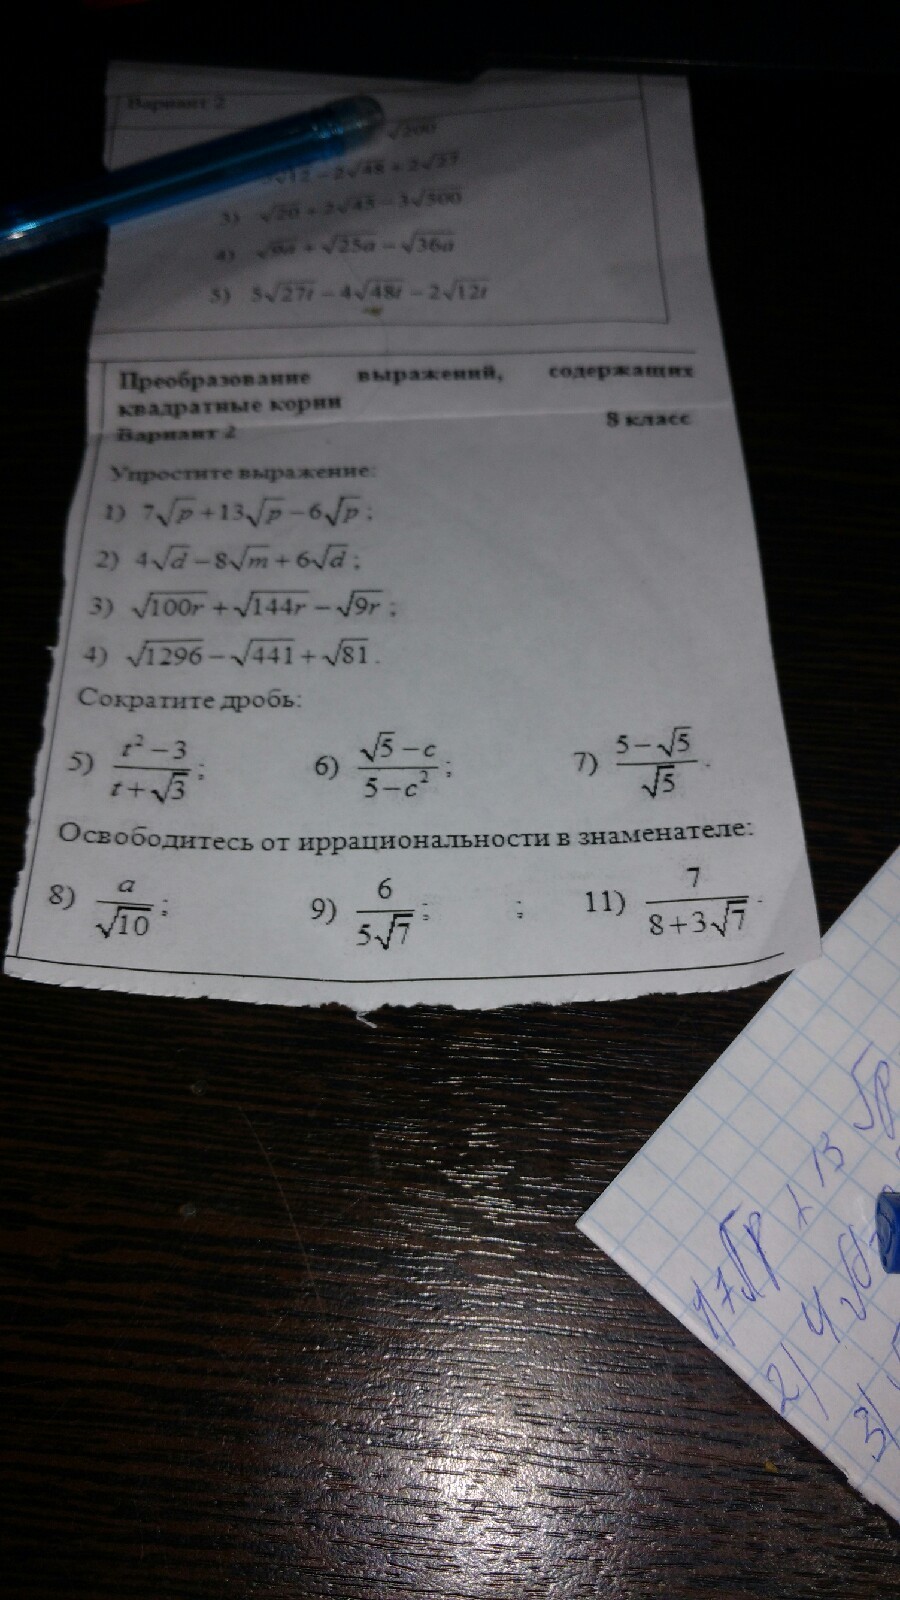 Вариант 2
√200
√12 − 2√48 + 2√27
3) √20 + 2√45 − 3√500
4) + √25a − √36a
5) 5√27t − 4√48t − 2√12t
Преобразование выражений, содержащих
квадратные корни
Вариант 2 8 класс
Упростите выражение:
1) 7√p + 13√p − 6√p ;
2) 4√d − 8√m + 6√d ;
3) √100r + √144r − √9r ;
4) √1296 − √441 + √81 .
Сократите дробь:
5) (t² − 3)/(t + √3) ; 6) (√5 − c)/(5 − c²) ; 7) (5 − √5)/√5 .
Освободитесь от иррациональности в знаменателе:
8) a/√10 ; 9) 6/(5√7) ; ; 11) 7/(8 + 3√7) .
1) 7√p + 13√p
2) 4√d
3) √